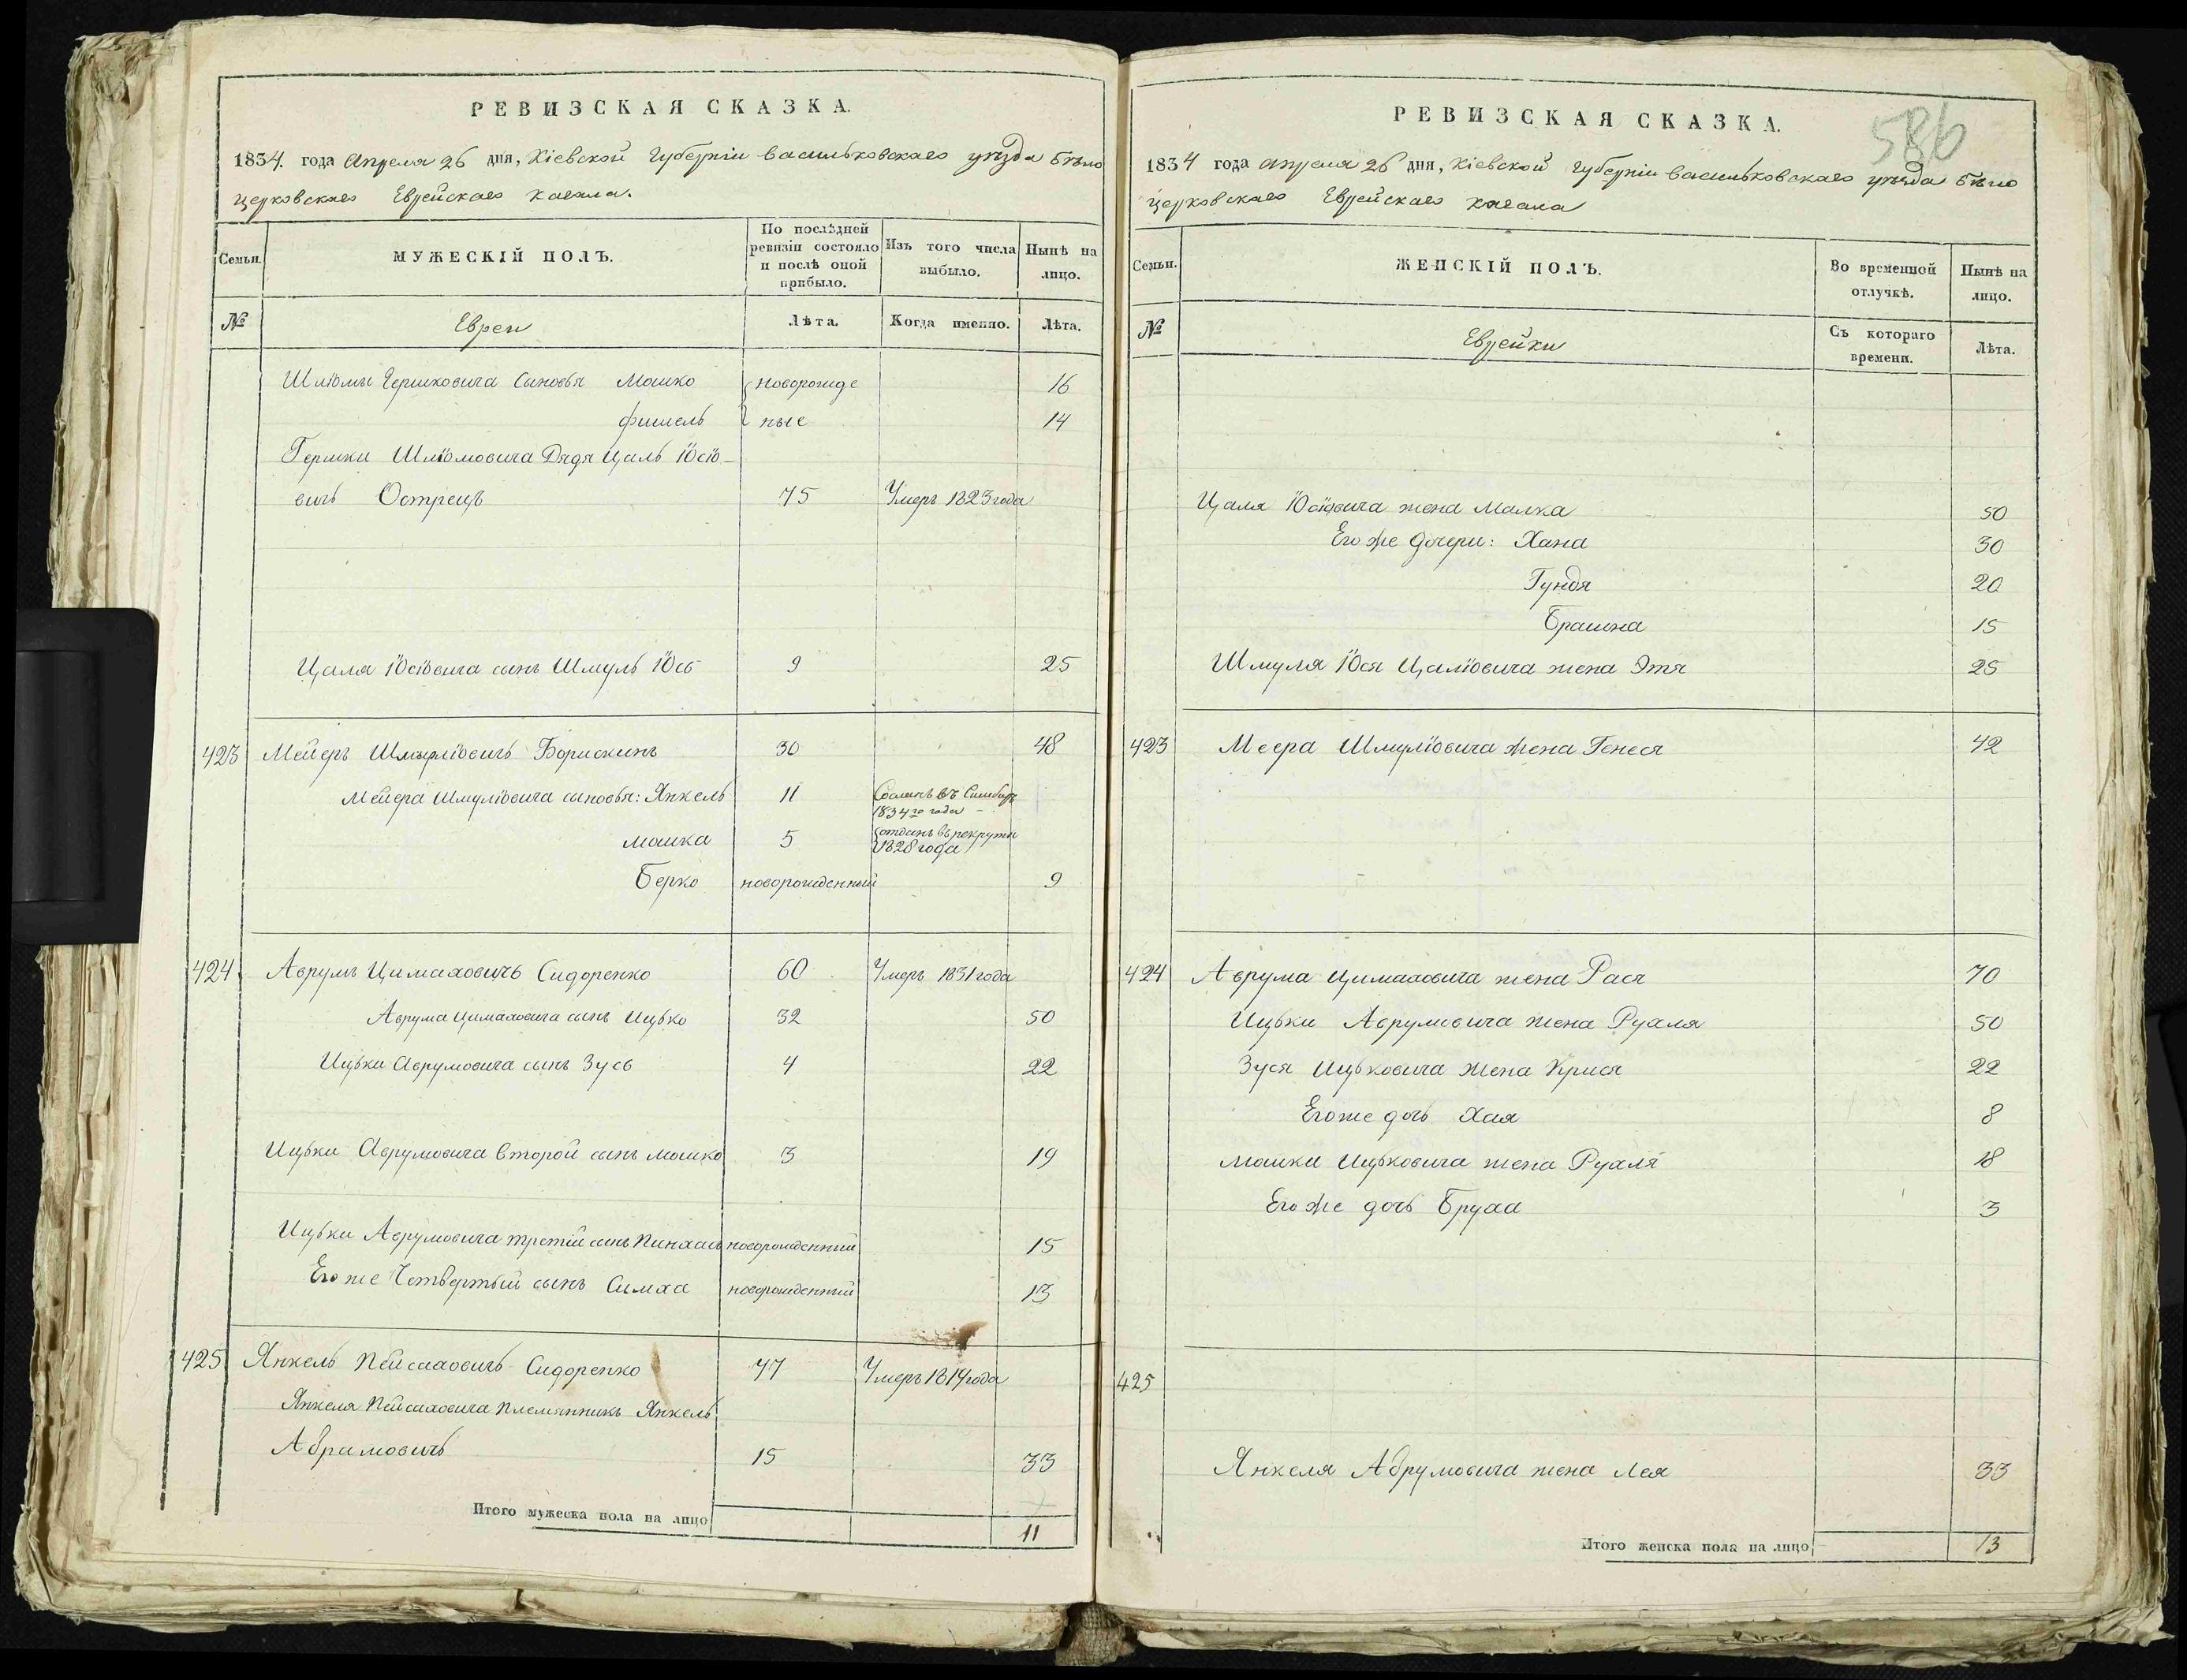 РЕВИЗСКАЯ СКАЗКА.
1834. года Апреля 26 дня, Кіевской Губерніи Васильковскаго уѣзда Бѣло
церковскаго Еврейскаго кагала.
Семьи.
МУЖЕСКІЙ ПОЛЪ.
По послѣдней ревизіи состояло и послѣ оной прибыло.
Изъ того числа выбыло.
Нынѣ на лицо.
№
Евреи
Лѣта.
Когда именно.
Лѣта.
Шліомы Гершковича Сыновья Мошко новорожде 16
фишель ные 14
Гершки Шліомовича Дядя Цаль Іосіо-
вичь Острецъ 75 Умеръ 1823 года
Цаля Іосіовича сынъ Шмуль Іось 9 25
423 Мейеръ Шмуліовичь Борискинъ 30 48
Мейера Шмуліовича сыновья: Янкель 11 Сосланъ въ Сибирь
1834го года
мошка 5 отданъ въ рекруты
1828 года
Берко новорожденный 9
424 Аврумъ Цимаховичь Сидоренко 60 Умеръ 1831 года
Аврума Цимаховича сынъ Ицько 32 50
Ицьки Аврумовича сынъ Зусь 4 22
Ицьки Аврумовича Второй сынъ мошко 3 19
Ицьки Аврумовича третій сынъ Пинхась новорожденный 15
Его же Четвертый сынъ Симха новорожденный 13
425 Янкель Пейсаховичь Сидоренко 47 Умеръ 1819 года
Янкеля Пейсаховича племянникъ Янкель
Абрамовичь 15 33
Итого мужеска пола на лицо 11
586
РЕВИЗСКАЯ СКАЗКА.
1834 года апреля 26 дня, Кіевской Губерніи Васильковскаго уѣзда Бѣло
церковскаго Еврейскаго кагала
Семьи.
ЖЕНСКІЙ ПОЛЪ.
Во временной отлучкѣ.
Нынѣ на лицо.
№
Еврейки
Съ котораго времени.
Лѣта.
Цаля Іосіовича жена Малка 50
Его же дочери: Хана 30
Гундя 20
15
Шмуля Іося Цаліовича жена Этя 25
423 Меера Шмуліовича жена Генеся 42
424 Аврума Цимаховича жена Рася 70
Ицьки Аврумовича жена Рухля 50
Зуся Ицьковича жена 22
Его же дочь Хая 8
Мошки Ицьковича жена Рухля 18
Его же дочь Бруха 3
425
Янкеля Абрумовича жена Лея 33
Итого женска пола на лицо 13